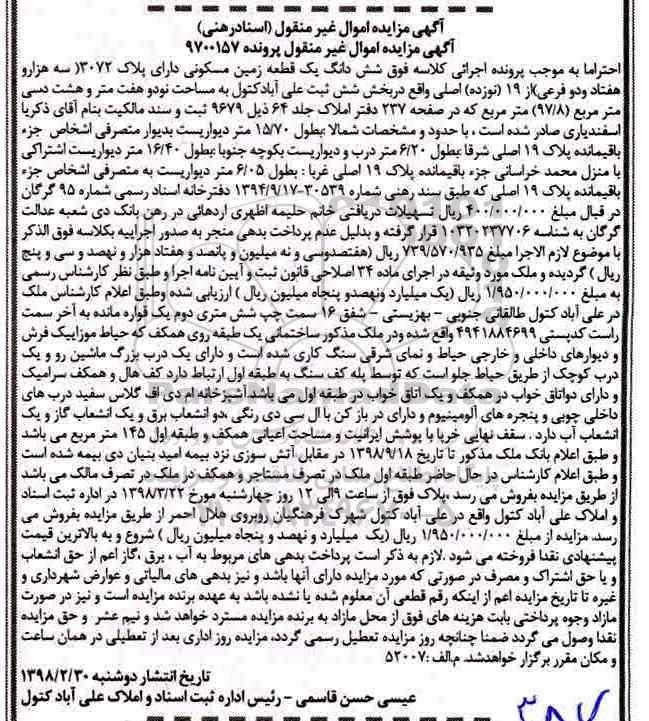 آگهی مزایده اموال غیر منقول (اسنادرهنی)
آگهی مزایده اموال غیر منقول پرونده ۹۷۰۰۱۵۷
احتراما به موجب پرونده اجرائی کلاسه فوق شش دانگ یک قطعه زمین مسکونی دارای پلاک ۳۰۷۲( سه هزارو
هفتاد ودو فرعی)از ۱۹ (نوزده) اصلی واقع دربخش شش ثبت علی آبادکتول به مساحت نودو هفت متر و هشت دسی
متر مربع (۹۷/۸) متر مربع که در صفحه ۲۳۷ دفتر املاک جلد ۶۴ ذیل ۹۶۷۹ ثبت و سند مالکیت بنام آقای ذکریا
اسفندیاری صادر شده است ، با حدود و مشخصات شمالا :بطول ۱۵/۷۰ متر دیواریست بدیوار متصرفی اشخاص جزء
باقیمانده پلاک ۱۹ اصلی شرقا :بطول ۶/۲۰ متر درب و دیواریست بکوچه جنوبا :بطول ۱۶/۴۰ متر دیواریست اشتراکی
با منزل محمد خراسانی جزء باقیمانده پلاک ۱۹ اصلی غربا : بطول ۶/۰۵ متر دیواریست به متصرفی اشخاص جزء
باقیمانده پلاک ۱۹ اصلی که طبق سند رهنی شماره ۳۰۵۳۹-۱۳۹۴/۹/۱۷ دفترخانه اسناد رسمی شماره ۹۵ گرگان
در قبال مبلغ ۴۰۰/۰۰۰/۰۰۰ ریال تسهیلات دریافتی خانم حلیمه اظهری اردهائی در رهن بانک دی شعبه عدالت
گرگان به شناسه ۱۰۳۲۰۲۳۷۷۰۶ قرار گرفته و بدلیل عدم پرداخت بدهی منجر به صدور اجراییه بکلاسه فوق الذکر
با موضوع لازم الاجرا مبلغ ۷۳۹/۵۷۰/۹۳۵ ریال (هفتصدوسی و نه میلیون و پانصد و هفتاد هزار و نهصد و سی و پنج
ریال ) گردیده و ملک مورد وثیقه در اجرای ماده ۳۴ اصلاحی قانون ثبت و آیین نامه اجرا و طبق نظر کارشناس رسمی
به مبلغ ۱/۹۵۰/۰۰۰/۰۰۰ ریال (یک میلیارد ونهصدو پنجاه میلیون ریال ) ارزیابی شده وطبق اعلام کارشناس ملک
در علی آباد کتول طالقانی جنوبی – بهزیستی – شفق ۱۶ سمت چپ شش متری دوم یک قواره مانده به آخر سمت
راست کدپستی ۴۹۴۱۸۸۴۶۹۹ واقع شده ودر ملک مذکور ساختمانی یک طبقه روی همکف که حیاط موزاییک فرش
و دیوارهای داخلی و خارجی حیاط و نمای شرقی سنگ کاری شده است و دارای یک درب بزرگ ماشین رو و یک
درب کوچک از طریق حیاط جلو است که توسط پله کف سنگ به طبقه اول ارتباط دارد کف هال و همکف سرامیک
و دارای دواتاق خواب در همکف و یک اتاق خواب در طبقه اول می باشد آشپزخانه ام دی اف گلاس سفید درب های
داخلی چوبی و پنجره های آلومینیوم و دارای در باز کن با ال سی دی رنگی ،دو انشعاب برق و یک انشعاب گاز و یک
انشعاب آب دارد . سقف نهایی خرپا با پوشش ایرانیت و مساحت اعیانی همکف و طبقه اول ۱۴۵ متر مربع می باشد
و طبق اعلام بانک ملک مذکور تا تاریخ ۱۳۹۸/۹/۱۸ در مقابل آتش سوزی نزد بیمه امید بنیان دی بیمه شده است
و طبق اعلام کارشناس در حال حاضر طبقه اول ملک در تصرف مستاجر و همکف در ملک در تصرف مالک می باشد
از طریق مزایده بفروش می رسد ،پلاک فوق از ساعت ۹الی ۱۲ روز چهارشنبه مورخ ۱۳۹۸/۳/۲۲ در اداره ثبت اسناد
و املاک علی آباد کتول واقع در علی آباد کتول شهرک فرهنگیان روبروی هلال احمر از طریق مزایده بفروش می
رسد. مزایده از مبلغ ۱/۹۵۰/۰۰۰/۰۰۰ ریال (یک میلیارد و نهصد و پنجاه میلیون ریال ) شروع و به بالاترین قیمت
پیشنهادی نقدا فروخته می شود .لازم به ذکر است پرداخت بدهی های مربوط به آب ، برق ،گاز اعم از حق انشعاب
و یا حق اشتراک و مصرف در صورتی که مورد مزایده دارای آنها باشد و نیز بدهی های مالیاتی و عوارض شهرداری و
غیره تا تاریخ مزایده اعم از اینکه رقم قطعی آن معلوم شده یا نشده باشد به عهده برنده مزایده است و نیز در صورت
مازاد وجوه پرداختی بابت هزینه های فوق از محل مازاد به برنده مزایده مسترد خواهد شد و نیم عشر و حق مزایده
نقدا وصول می گردد ضمنا چنانچه روز مزایده تعطیل رسمی گردد، مزایده روز اداری بعد از تعطیلی در همان ساعت
و مکان مقرر برگزار خواهدشد. م.الف :۵۲۰۰۷
تاریخ انتشار دوشنبه ۱۳۹۸/۲/۳۰
عیسی حسن قاسمی – رئیس اداره ثبت اسناد و املاک علی آباد کتول